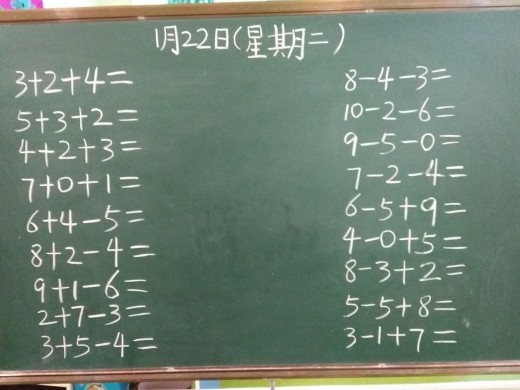 1月22日(星期二)
3+2+4=
5+3+2=
4+2+3=
7+0+1=
6+4-5=
8+2-4=
9+1-6=
2+7-3=
3+5-4=
8-4-3=
10-2-6=
9-5-0=
7-2-4=
6-5+9=
4-0+5=
8-3+2=
5-5+8=
3-1+7=